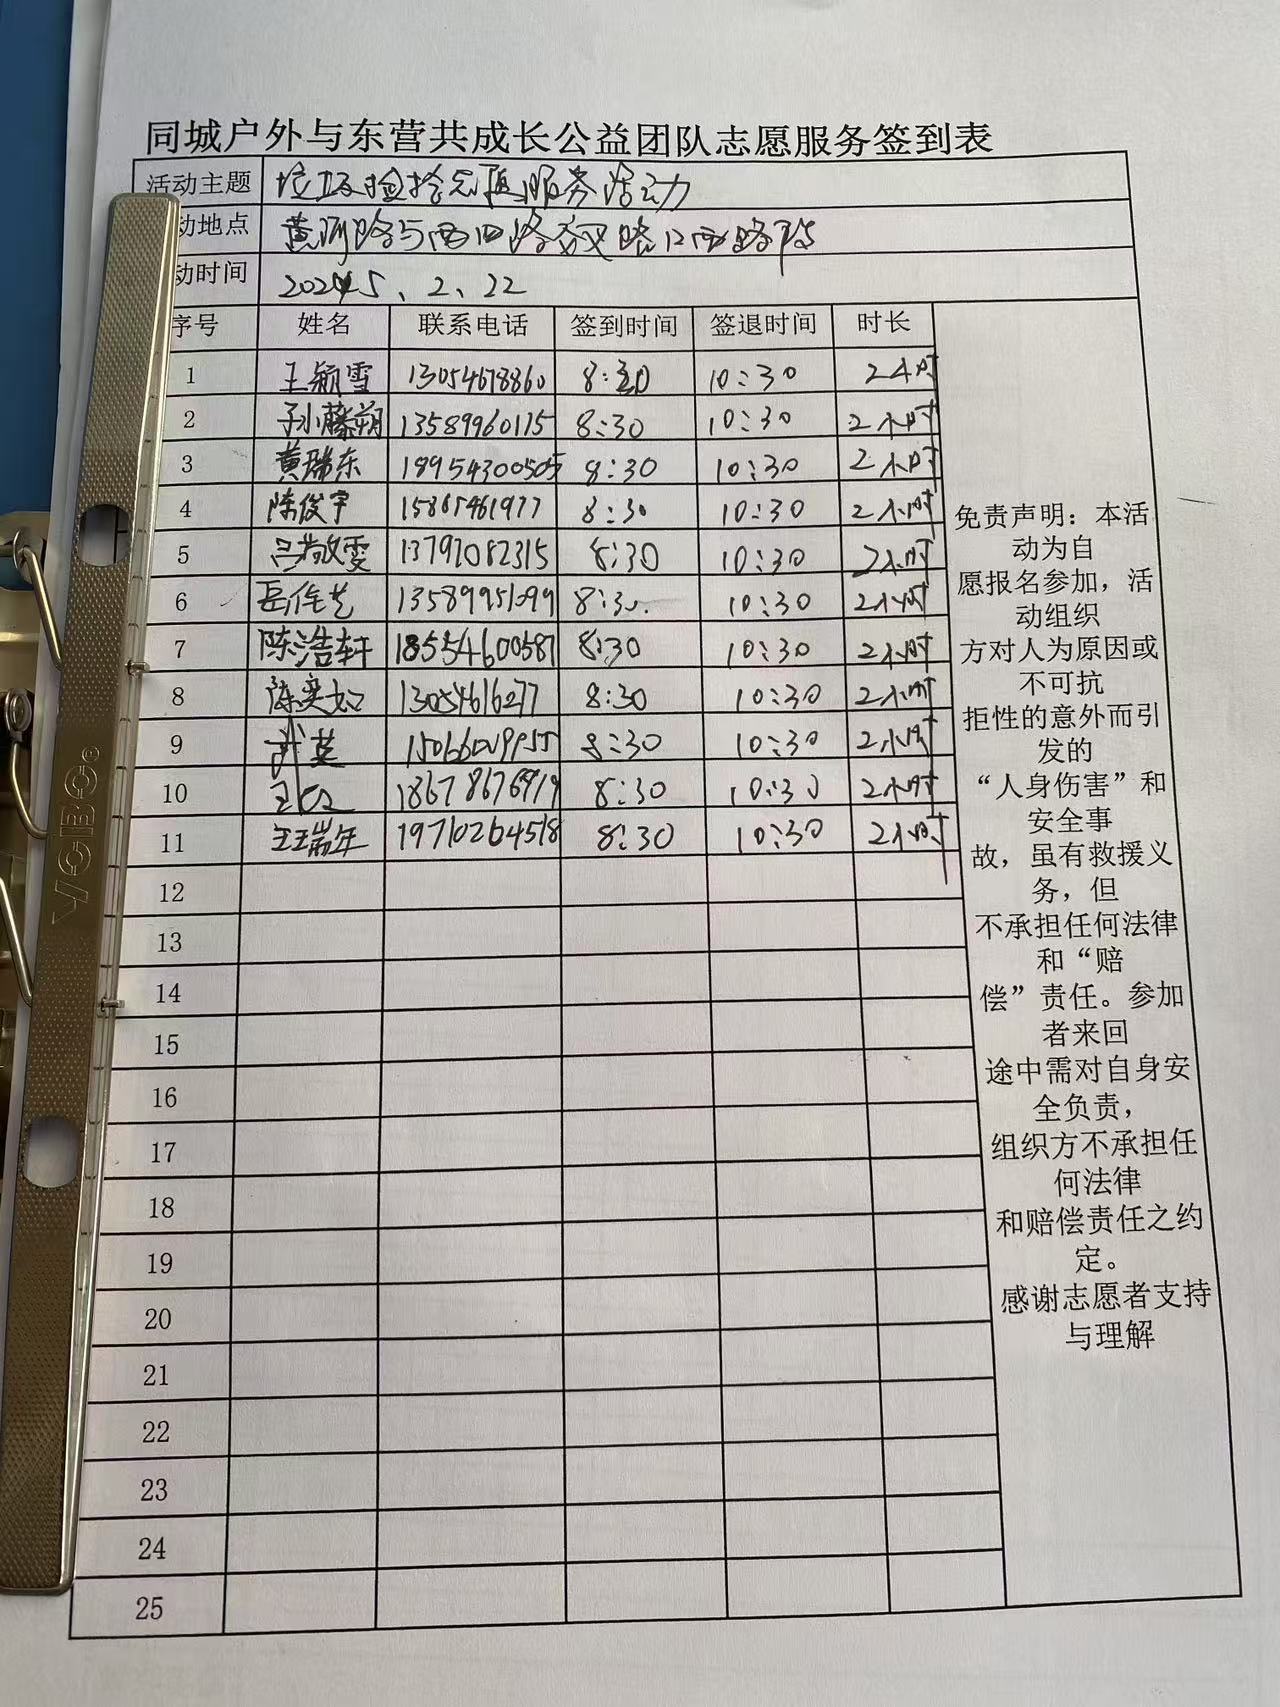 同城户外与东营共成长公益团队志愿服务签到表
活动主题 垃圾捡拾志愿服务活动
动地点 黄河路与西四路交叉路口西路
动时间 2025、2、22
序号 姓名 联系电话 签到时间 签退时间 时长
1 王颖雪 13054678860 8:30 10:30 2小时
2 孙藤朔 13589960115 8:30 10:30 2小时
3 黄瑞东 18954300505 8:30 10:30 2小时
4 陈俊宇 15865461977 8:30 10:30 2小时
5 吕敬雯 13792082315 8:30 10:30 2小时
6 岳 13589951099 8:30 10:30 2小时
7 陈浩轩 18554600587 8:30 10:30 2小时
8 陈奕如 13054616277 8:30 10:30 2小时
9 武英 8:30 10:30 2小时
10 王 8:30 10:30 2小时
11 王瑞年 19710264518 8:30 10:30 2小时
12
13
14
15
16
17
18
19
20
21
22
23
24
25
免责声明：本活
动为自
愿报名参加，活
动组织
方对人为原因或
不可抗
拒性的意外而引
发的
“人身伤害”和
安全事
故，虽有救援义
务，但
不承担任何法律
和“赔
偿”责任。参加
者来回
途中需对自身安
全负责，
组织方不承担任
何法律
和赔偿责任之约
定。
感谢志愿者支持
与理解
WOBO®